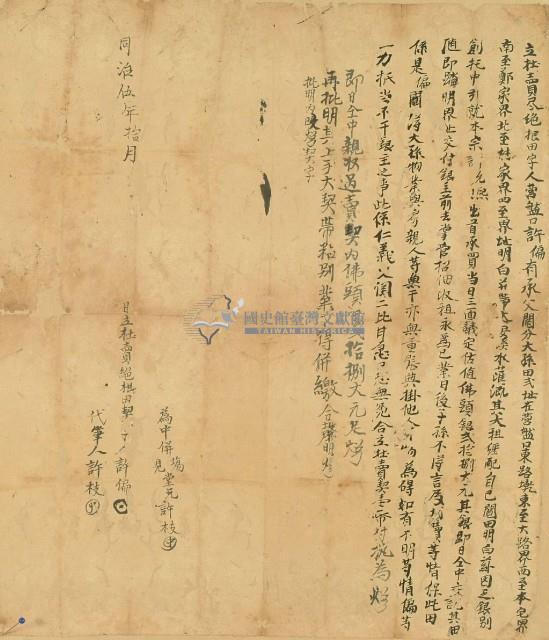 立杜賣尽絕根田字人營盤口許偏有承父鬮分大孫田弍址在營盤口東路墘東至大路界西至本宅界
南至鄭家界北至林家界四至界址明白并帶大　　水灌溉其大租經配自己鬮田明白茲因乏銀別
創托中引就本宗　　　出首承買當日三面議定估值佛頭銀弍拾捌大元其銀即日仝中交訖其田
隨即踏明界止交付銀主前去掌管招佃收租永為己業日後子孫不得言及找　等情保此田
係是偏鬮得大孫物業與房親人等無干亦無重張典掛他人　為碍如有不明等情偏等
一力抵当不干銀主之事此係仁義父関二比甘愿口恐無憑合立杜賣契壹帋付执為炤
即日仝中親收過賣契内佛頭　拾捌大元足炤
再批明其上手大契帶粘別業　得併繳合㨗明炤
批明内
同治伍年拾月　日立杜賣絕根田契　人許偏
為中併　見　　許枝
代筆人許枝
國史館臺灣文獻館
TAIWAN HISTORICA